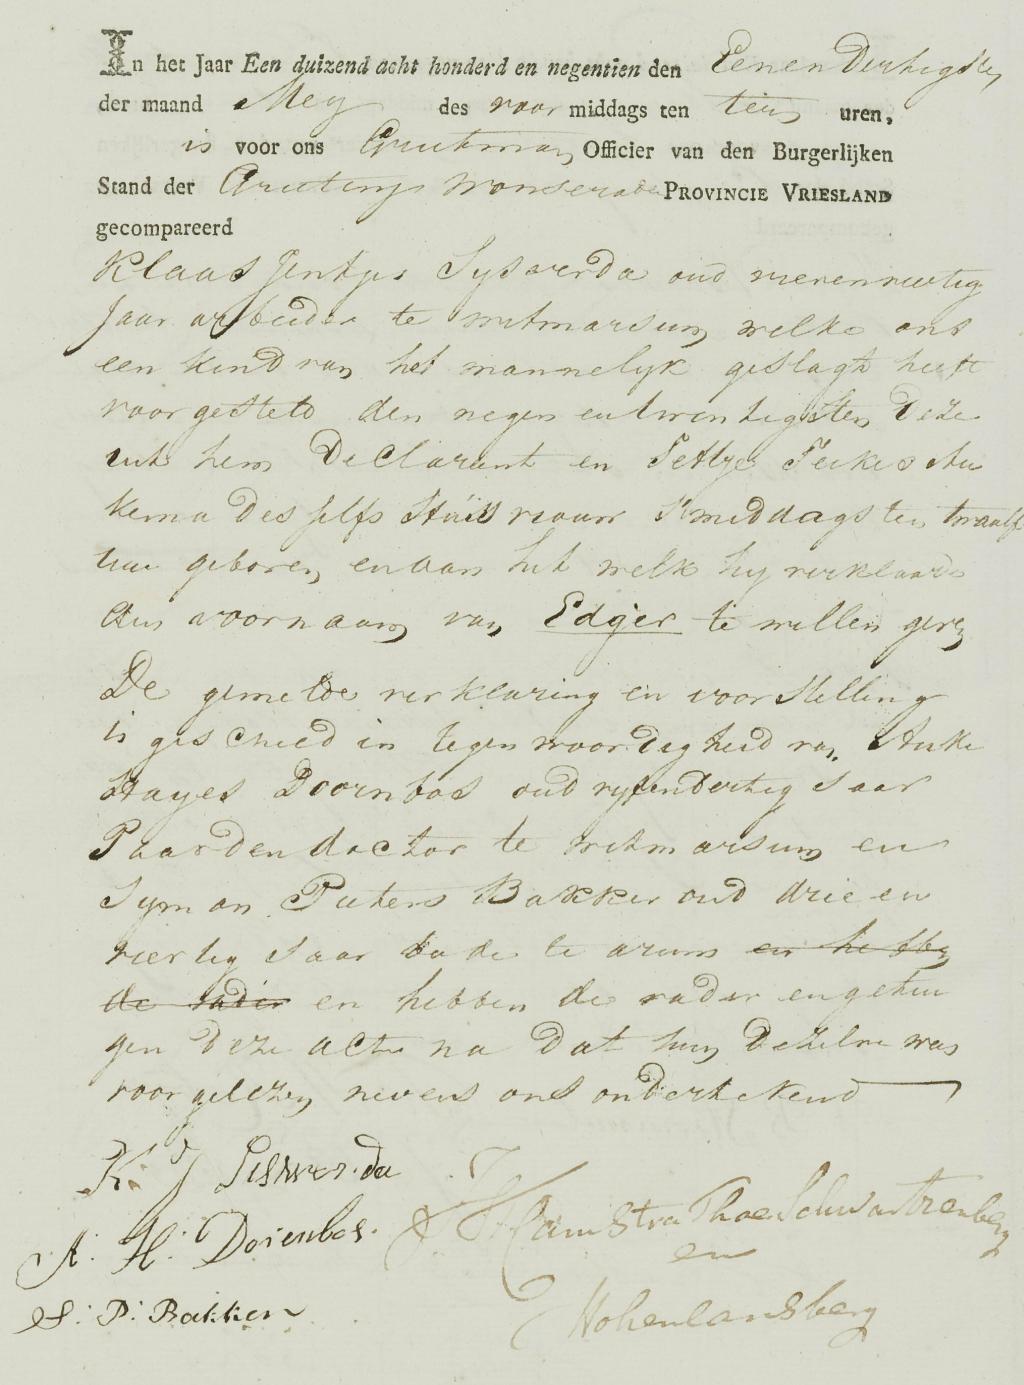 In het Jaar Een duizend acht honderd en negentien den Eenen Dertigsten
der maand Mey des voor middags ten tien uren,
is voor ons Grietman Officier van den Burgerlijken
Stand der Grieteny Wonseradeel PROVINCIE VRIESLAND
gecompareerd
Klaas Jentjes Syswerda oud vierenveertig
Jaar arbeider te witmarsum welke ons
een kind van het mannelyk geslagt heeft
voorgesteld den negen en twentigsten Deze
uit hem Declarant en Tettje Feikes Au
kema Deszelfs Huisvrouw s middags ten twaalf
uur geboren en aan het welk hy verklaarde
den voornaam van Edger te willen geven
De gemelde verklaring en voorstelling
is geschied in tegenwoordigheid van Auke
Hayes Doornbos oud vyfendertig Jaar
Paardendoctor te witmarsum en
Symon Pieters Bakker oud drie en
veertig Jaar bode te arum en hebben
de vader en hebben de vader en getui
gen Deze acte na Dat hun Dezelve was
voorgelezen nevens ons ondertekend
K. J Siswerda
A. H. Dorenbos.
S. P. Bakker
Camstra Thoe Schwartzenberg
en
Hohenlansberg